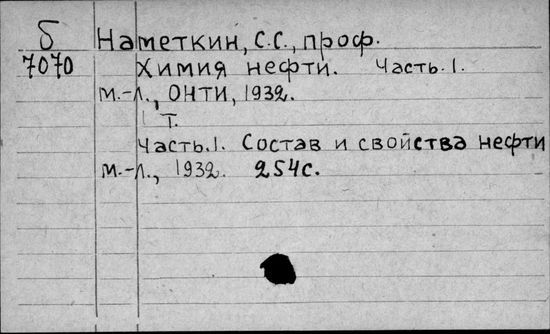 Б Наметкин, С.С., проф.
7070 Химия нефти. Часть. 1.
М.-Л., ОНТИ, 1932.
1 Т.
Часть.1. Состав и свойства нефти
М.-Л., 1932. 254с.